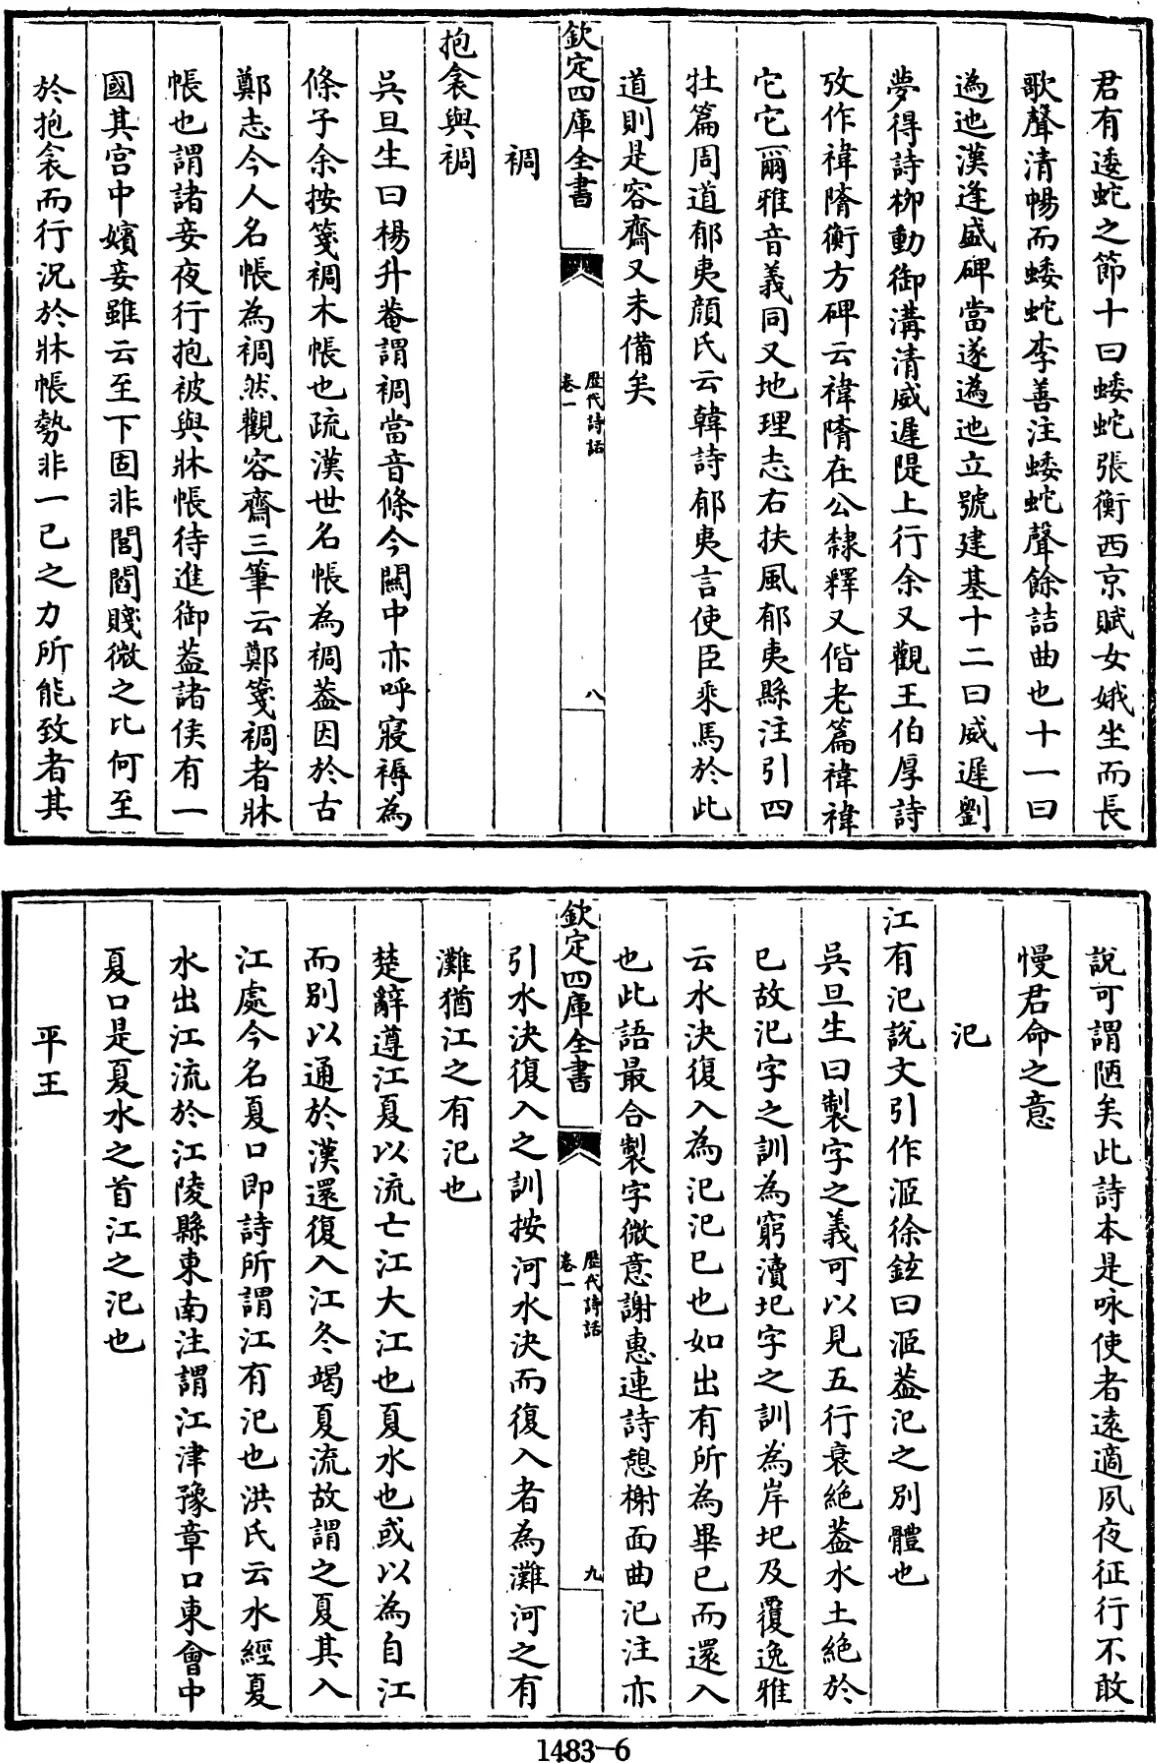 君有逶蛇之節十曰蜲蛇張衡西京賦女娥坐而長
歌聲清暢而蜲蛇李善注蜲蛇聲餘詰曲也十一曰
逶迆漢逢盛碑當遂逶迆立號建基十二曰威遲劉
夢得詩柳動御溝清威遲隄上行余又觀王伯厚詩
攷作禕隋衡方碑云禕隋在公隸釋又偕老篇禕禕
它它爾雅音義同又地理志右扶風郁夷縣注引四
牡篇周道郁夷顏氏云韓詩郁夷言使臣乘馬於此
道則是容齋又未備矣
欽定四庫全書
歷代詩話
卷一
八
裯
抱衾與裯
吳旦生曰楊升菴謂裯當音條今閩中亦呼寢褥為
條子余按箋裯木帳也疏漢世名帳為裯葢因於古
鄭志今人名帳為裯然觀容齋三筆云鄭箋裯者牀
帳也謂諸妾夜行抱被與牀帳待進御葢諸侯有一
國其宫中嬪妾雖云至下固非閭閻賤微之比何至
於抱衾而行況於牀帳勢非一已之力所能致者其
說可謂陋矣此詩本是咏使者遠適夙夜征行不敢
慢君命之意
汜
江有汜說文引作洍徐鉉曰洍葢汜之別體也
吳旦生曰製字之義可以見五行衰絶葢水土絶於
巳故汜字之訓為窮瀆圯字之訓為岸圯及覆逸雅
云水決復入為汜汜巳也如出有所為畢巳而還入
也此語最合製字微意謝惠連詩憩榭面曲汜注亦
欽定四庫全書
歷代詩話
卷一
九
引水決復入之訓按河水決而復入者為灉河之有
灉猶江之有汜也
楚辭遵江夏以流亡江大江也夏水也或以為自江
而別以通於漢還復入江冬竭夏流故謂之夏其入
江處今名夏口即詩所謂江有汜也洪氏云水經夏
水出江流於江陵縣東南注謂江津豫章口東會中
夏口是夏水之首江之汜也
平王
1483-6